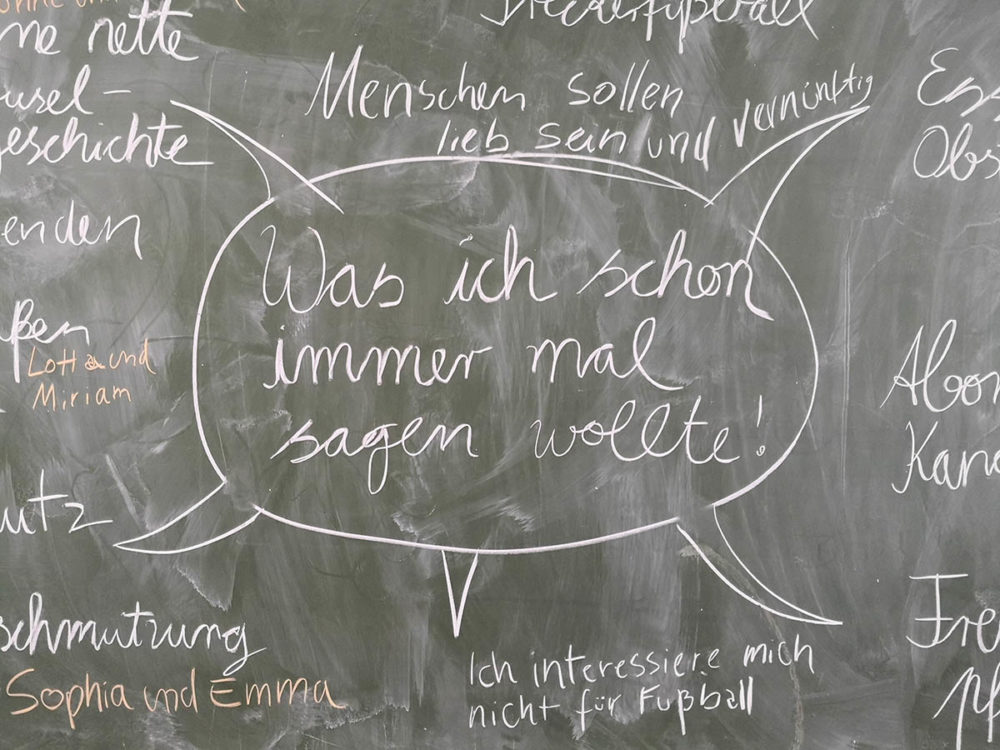 ne nette
usel-
eschichte
enden
ßen
Lotta und
Miriam
utz
schmutzung
Sophia und Emma
Menschen sollen
lieb sein und vernünftig
Was ich schon
immer mal
sagen wollte!
Ich interessiere mich
nicht für Fußball
Ess
Obs
Abon
Kana
Fre
pf